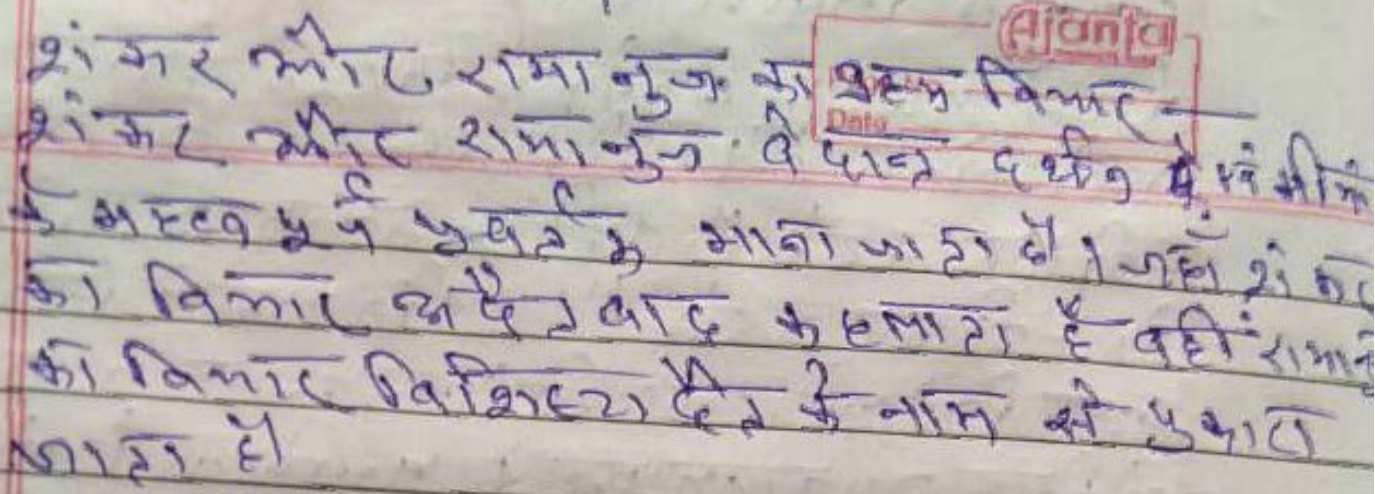 Ajanta
शंकर और रामानुज का ब्रह्म विचार —
Date
शंकर और रामानुज वेदान्त दर्शन में एवं
के महत्वपूर्ण प्रवर्तक माना जाता है। जहाँ शंकर
का विचार अद्वैतवाद कहलाता है वहीं रामानु
का विचार विशिष्टाद्वैत के नाम से पुकारा
जाता है